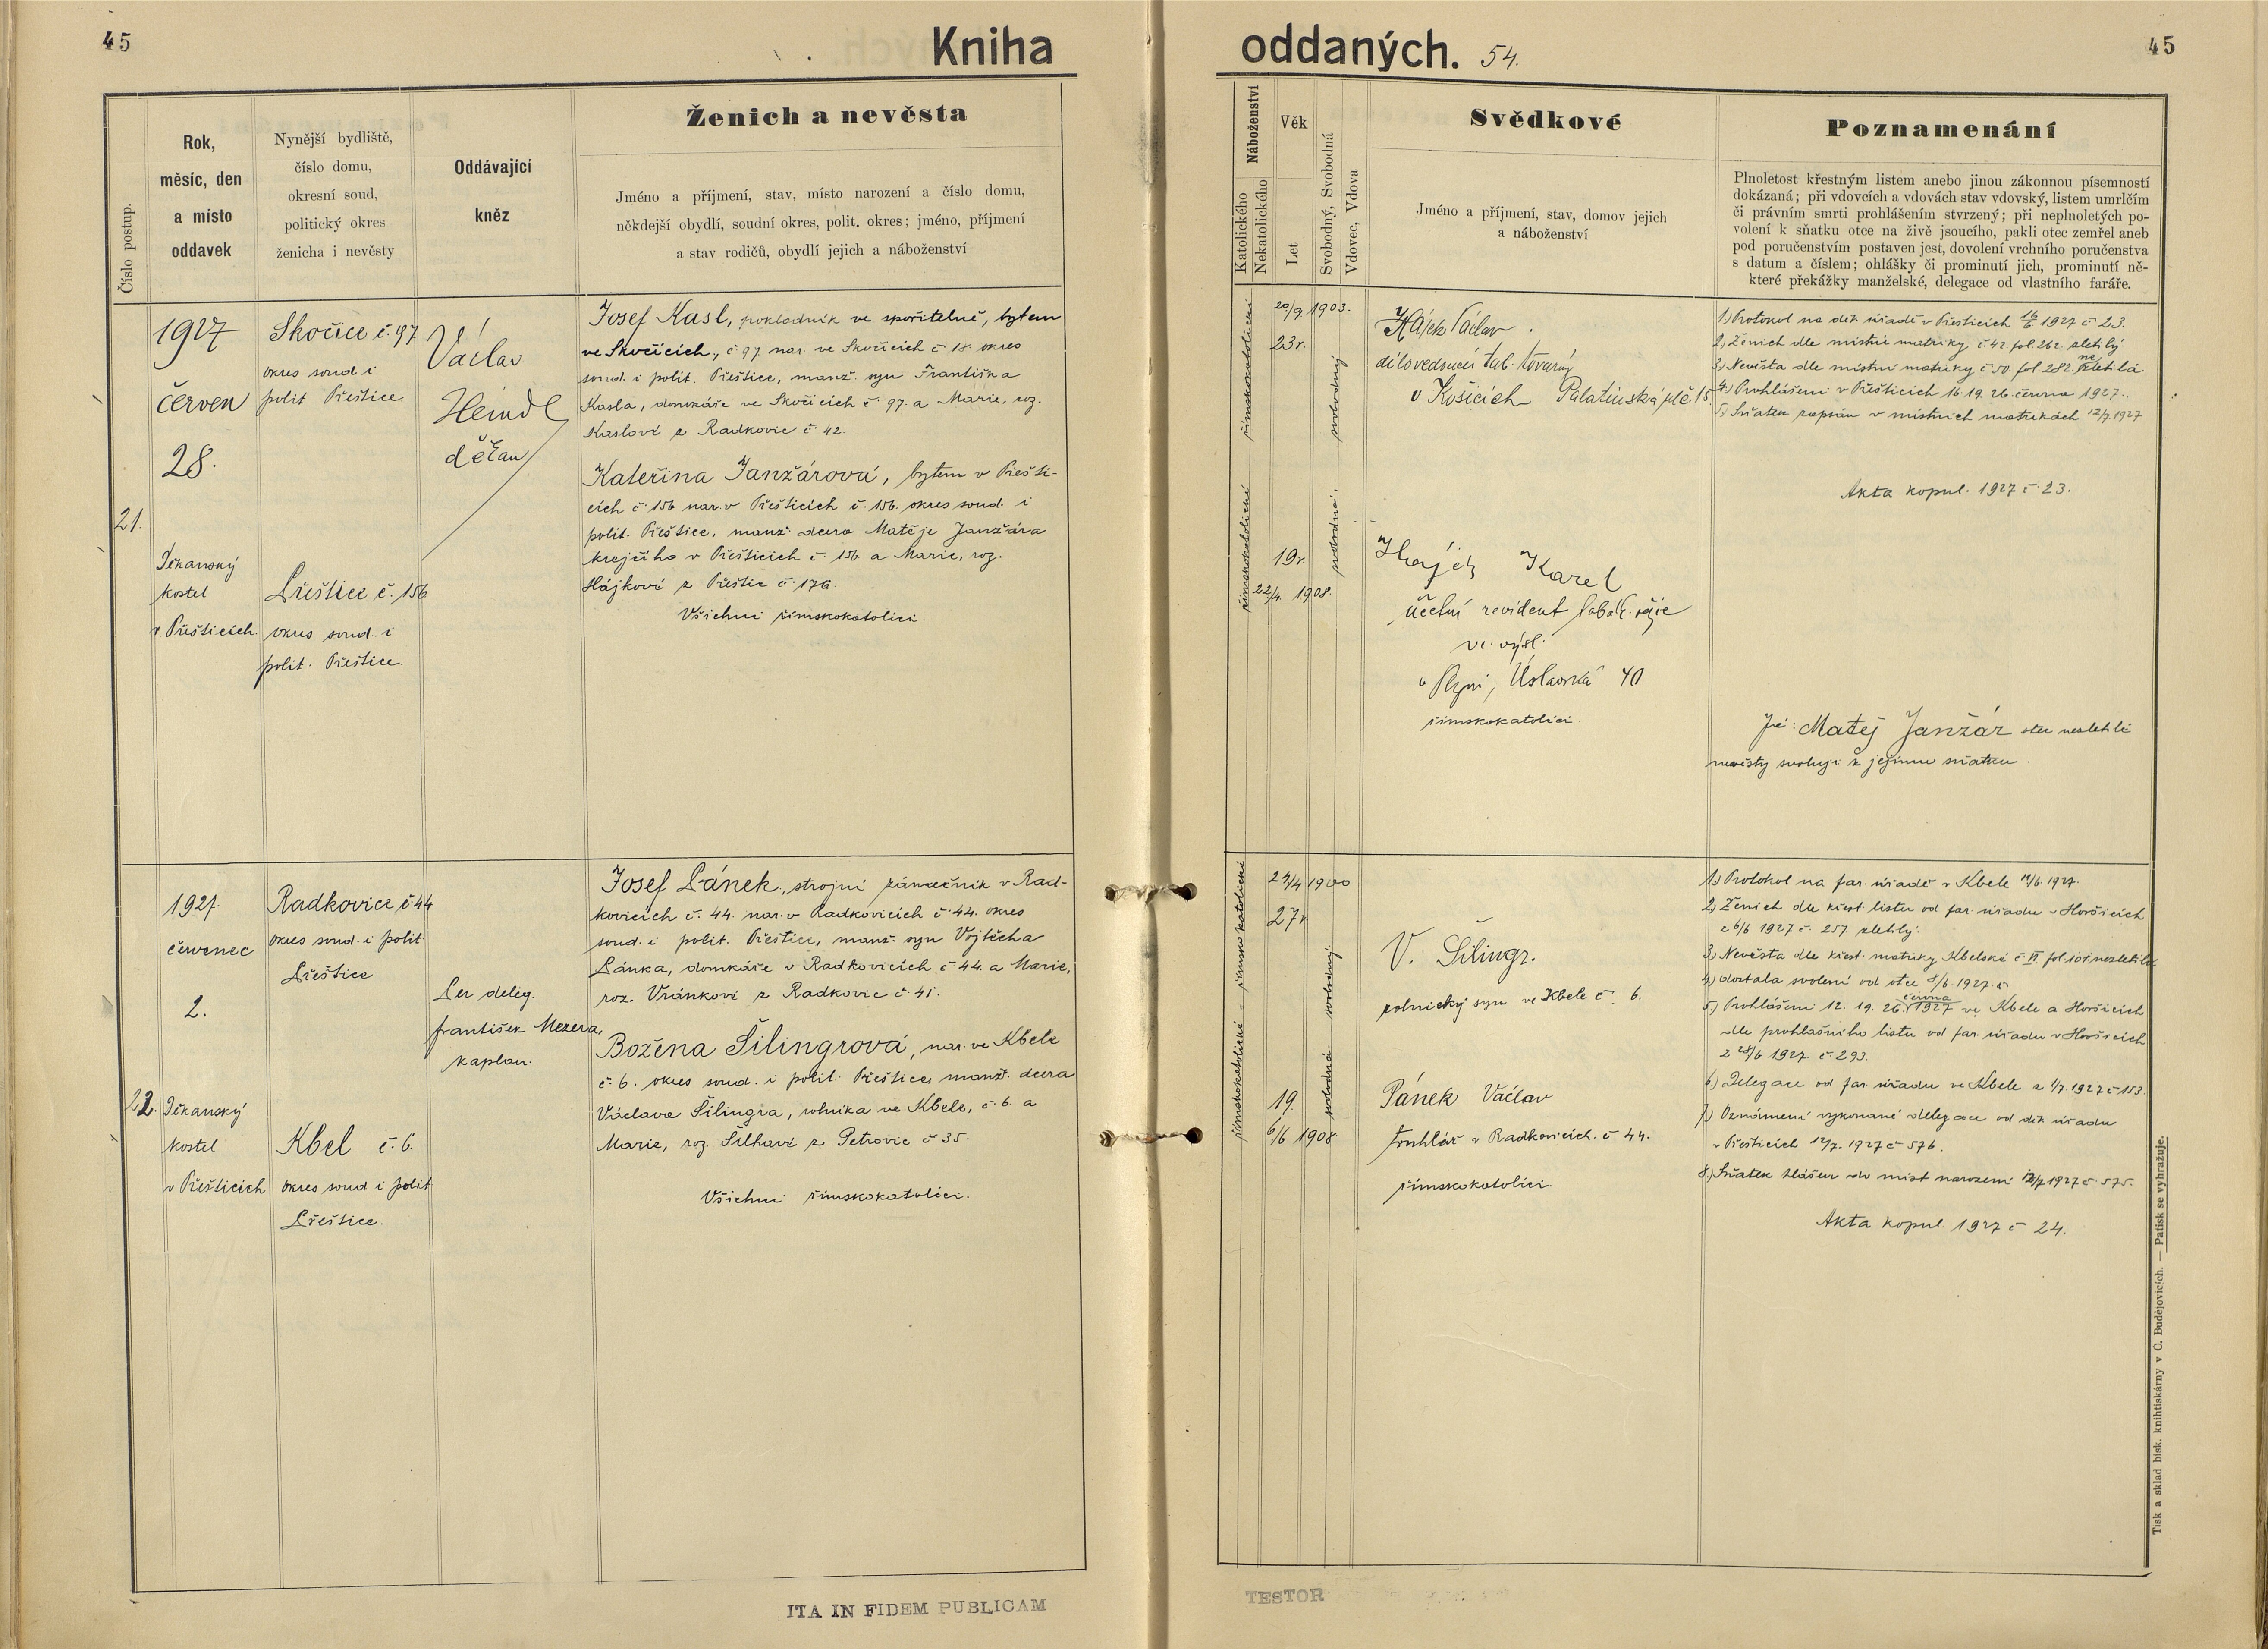 45
Kniha
oddaných. 54.
45
Číslo postup.
Rok,
měsíc, den
a místo
oddavek
Nynější bydliště,
číslo domu,
okresní soud,
politický okres
ženicha i nevěsty
Oddávající
kněz
Ženich a nevěsta
Jméno a příjmení, stav, místo narození a číslo domu,
někdejší obydlí, soudní okres, polit. okres; jméno, příjmení
a stav rodičů, obydlí jejich a náboženství
Náboženství
Katolického
Nekatolického
Věk
Let
Svobodný, Svobodná
Vdovec, Vdova
Svědkové
Jméno a příjmení, stav, domov jejich
a náboženství
Poznamenání
Plnoletost křestným listem anebo jinou zákonnou písemností
dokázaná; při vdovcích a vdovách stav vdovský, listem umrlčím
či právním smrti prohlášením stvrzený; při neplnoletých po-
volení k sňatku otce na živě jsoucího, pakli otec zemřel aneb
pod poručenstvím postaven jest, dovolení vrchního poručenstva
s datum a číslem; ohlášky či prominutí jich, prominutí ně-
které překážky manželské, delegace od vlastního faráře.
21.
1927
červen
28.
Děkanský
kostel
v Přešticích.
Skočice č. 97
okres soud i
polit Přeštice
Přeštice č. 156
okres soud. i
polit. Přeštice.
Václav
Heindl
děkan
Josef Kasl, pokladník ve spořitelně, bytem
ve Skočicích, č 97 nar. ve Skočicích č 18 okres
soud. i polit. Přeštice, manž. syn Františka
Kasla, domkáře ve Skočicích č. 97. a Marie, roz.
Kaslové z Radkovic č. 42.
Kateřina Janžárová, bytem v Přešti-
cích č. 156 nar. v Přešticích č. 156. okres soud. i
polit. Přeštice, manž dcera Matěje Janžára
krejčího v Přešticích č. 156 a Marie, roz.
Hájkové z Přeštic č. 176.
Všichni římskokatolíci.
římskokatolické
římskokatolické
20/9 1903.
23 r.
19 r.
22/4. 1908.
svobodný
svobodná.
Hájek Václav.
dílovedoucí tab. továrny
v Košicích Palatinská ul č 15.
Hájek Karel
účetní revident tabák. režie
ve výsl.
v Plzni, Úslavská 40
římskokatolíci.
1) Protokol na děk úřadě v Přešticích 16/6 1927 č 23.
2) Ženich dle místní matriky č 42. fol. 262. zletilý.
3) Nevěsta dle místní matriky č 50. fol 282. nezletilá.
4) Prohlášeni v Přešticích 16. 19. 26. června 1927.
5) Sňatek zapsán v místních matrikách 12/7 1927
Akta kopul. 1927 č 23.
Já: Matěj Janžár otec nezletilé
nevěsty svoluji k jejímu sňatku.
22.
1927.
červenec
2.
Děkanský
kostel
v Přešticích
Radkovice č 44
okres soud. i polit.
Přeštice
Kbel č. 6.
okres soud i polit
Přeštice.
Per deleg.
František Mezera,
kaplan.
Josef Pánek, strojní zámečník v Rad-
kovicích č. 44. nar. v Radkovicích č. 44. okres
soud. i polit. Přeštice, manž. syn Vojtěcha
Pánka, domkáře v Radkovicích č 44. a Marie,
roz. Vránkové z Radkovic č 41.
Božena Šilingrová, nar. ve Kbele
č. 6. okres soud. i polit. Přeštice, manž. dcera
Václava Šilingra, rolníka ve Kbele, č. 6 a
Marie, roz. Šilhavé z Petrovic č 35.
Všichni římskokatolíci.
římskokatolické - římskokatolické
24/4 1900
27 r.
19.
6/6 1908
svobodný
svobodná
V. Šilingr.
rolnický syn ve Kbele č. 6.
Pánek Václav
truhlář v Radkovicích. č 44.
římskokatolíci.
1.) Protokol na far. úřadě v Kbele 12/6. 1927.
2.) Ženich dle křest. listu od far. úřadu v Horšicích
z 6/6 1927 č. 257 zletilý.
3.) Nevěsta dle křest. matriky Kbelské č VI fol 104 nezletilá
4.) dostala svolení od otce 8/6. 1927. č
5.) Prohlášeni 12. 19. 26. června 1927 ve Kbele a Horšicích
dle prohlašního listu od far. úřadu v Horšicích
z 28/6 1927. č 293.
6.) Delegace od far. úřadu ve Kbele z 1/7. 1927 č 153.
7.) Oznámení vykonané delegace od děk úřadu
v Přešticích 12/7. 1927 č 576.
8.) Sňatek hlášen do míst narození 12/7 1927 č. 575.
Akta kopul. 1927 č 24.
ITA IN FIDEM PUBLICAM
TESTOR
Tisk a sklad bisk. knihtiskárny v C. Budějovicích. — Patisk se vyhražuje.